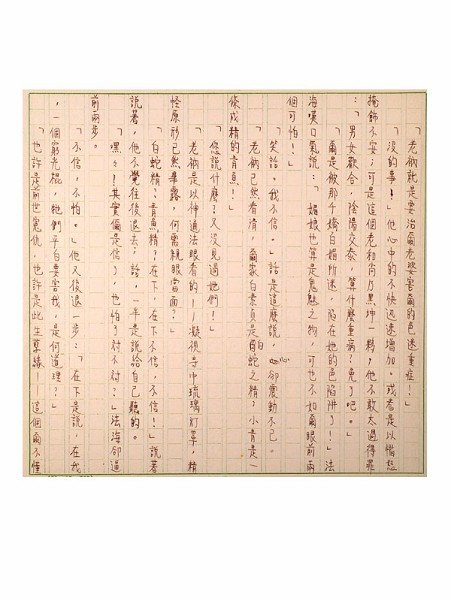 「老衲就是要治爾老婆害爾的色迷重症!」
「沒的事!」他心中的不快迅速增加。或者是以慍怒
掩飾不安;可是這個老和尚乃黑坤一,他不敢太過得罪
:「男女歡合,陰陽交泰,算什麼重病?免了吧。」
「爾是那千嬌百媚所迷,陷在她的色陷阱了!」法
海嘆口氣說:「媚娘也算是鬼魅之物,可也不如爾眼前兩
個可怕!」
「笑話。我不信。」話是這麼說,卻震動不已。
「老衲已然看清,爾家白素貞是白蛇之精,小青是一
條成精的青魚!」
「您說什麼?又沒見過她們!」
「老衲是以神通法眼看的!——凝視寺中琉璃灯草,精
怪原形已然畢露,何需親眼當面?」
「白蛇精?青魚精?在下,在下不信,不信!」說著
說著,他不覺往後退去;話,一半是說給自己聽的。
「嘿々!其實爾是信了,也怕了對不對?」法海卻逼
前兩步。
「不信,不怕。」他又後退一步:「在下是說,在我
,一個窮光棍,牠們平白要害我,是何道理?」
「也許是前世冤仇,也許是此生孽緣——這個爾不懂